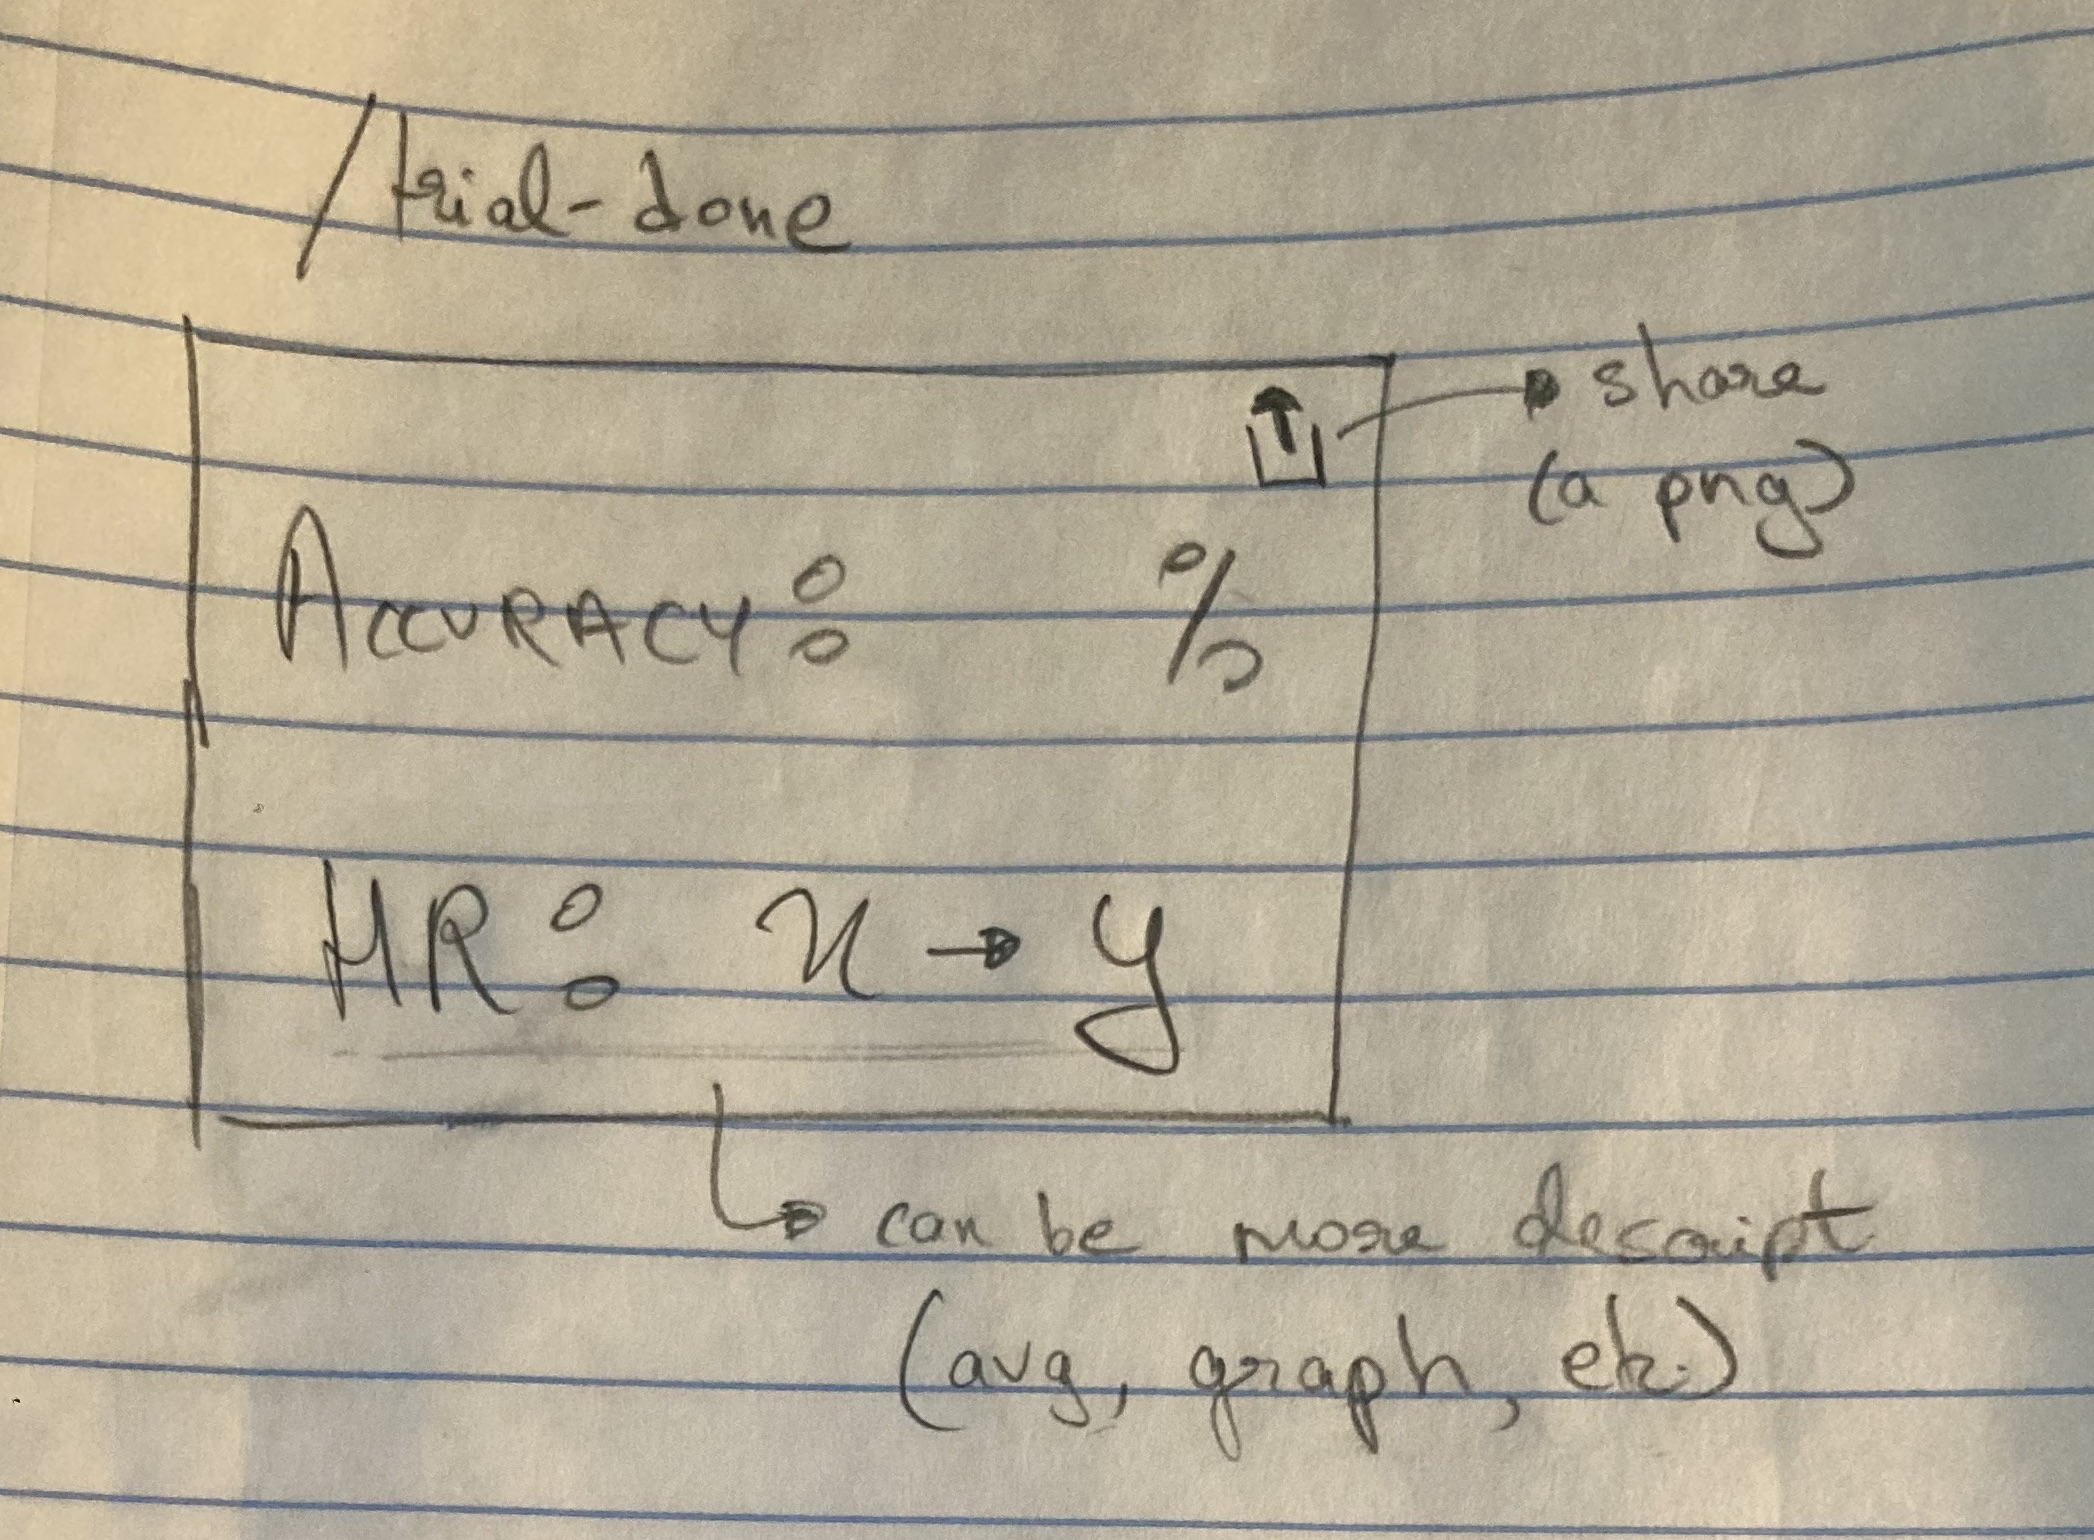 /trial-done
share
(a png)
ACCURACY: %
HR: x → y
can be more descript
(avg, graph, etc.)